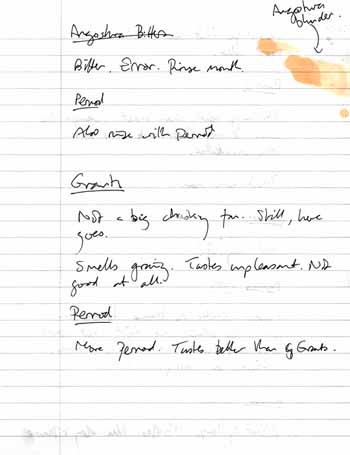 Angostura Bitters
Angostura
blunder.
Bitter. Error. Rinse mouth.
Pernod
Also rinse with Pernod
Grants
Not a big whisky fan. Still, here
goes.
Smells grainy. Tastes unpleasant. Not
good at all.
Pernod
More Pernod. Tastes better than Grants.